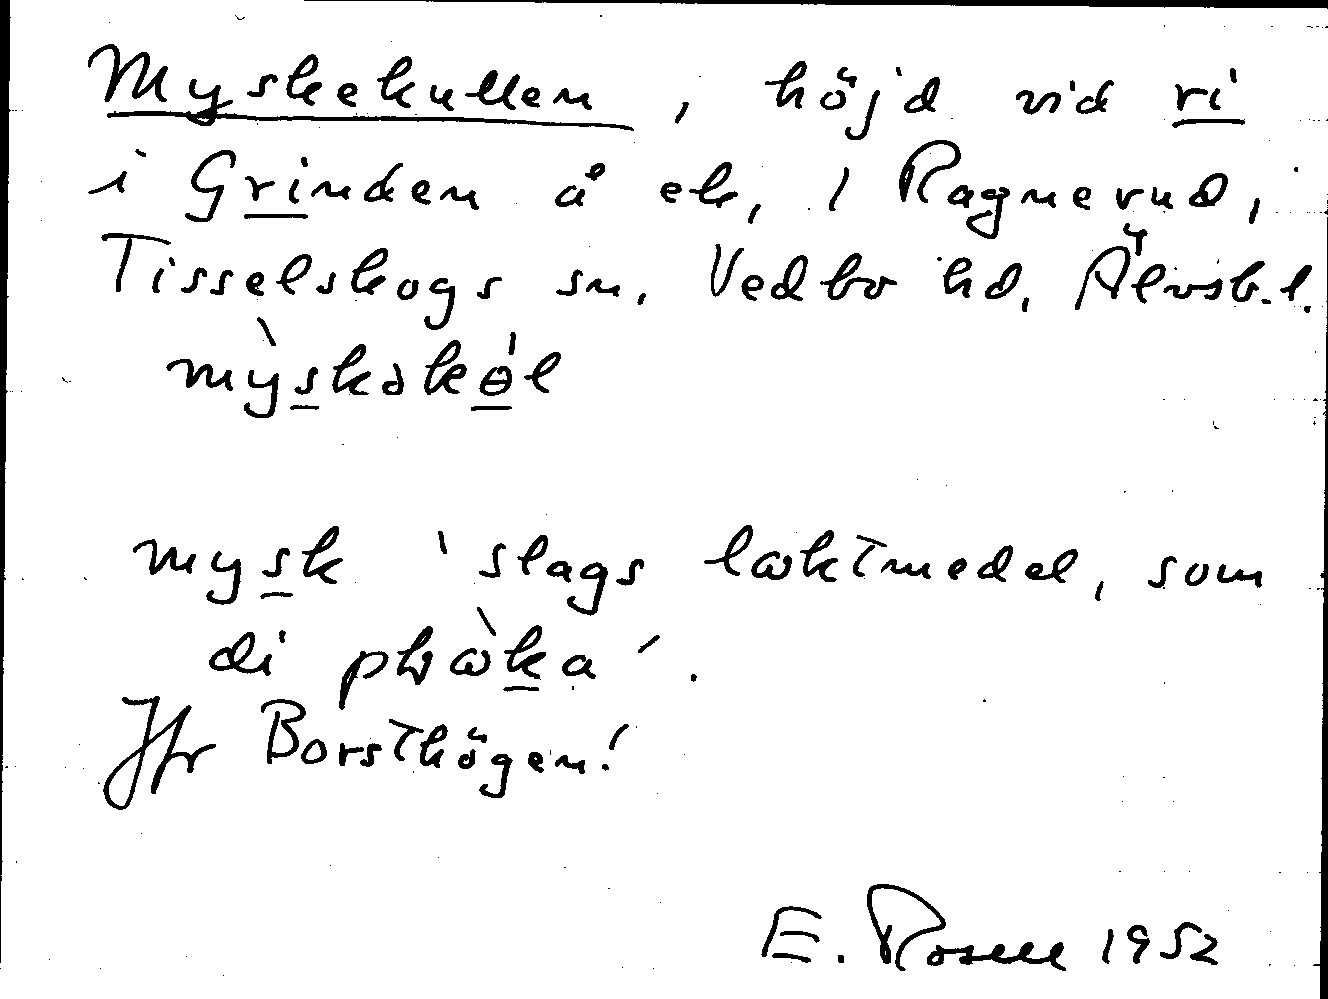 Myskekullen, höjd vid ri
i Grinden å ek, 1 Ragnerud,
Tisselskogs sn, Vedbo hd, Älvsb. l.
mỳskəkɵ́l
mysk 'slags lɷktmedel, som
di plɷ̀ka'.
Jfr Borsthögen!
E. Rosell 1952